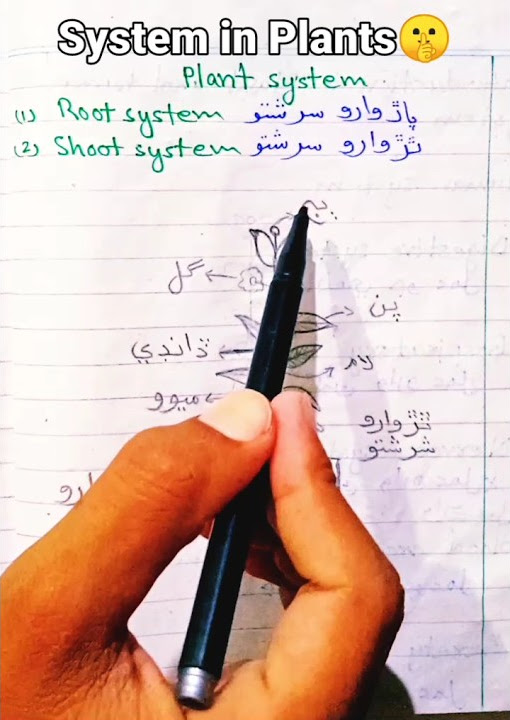 System in Plants🤫
Plant system
(1) Root system پاڙ وارو سرشتو
(2) Shoot system ٿڙ وارو سرشتو
گل
پن
ڏانڊي
لام
ميوو
ٿڙ وارو
شرشتو